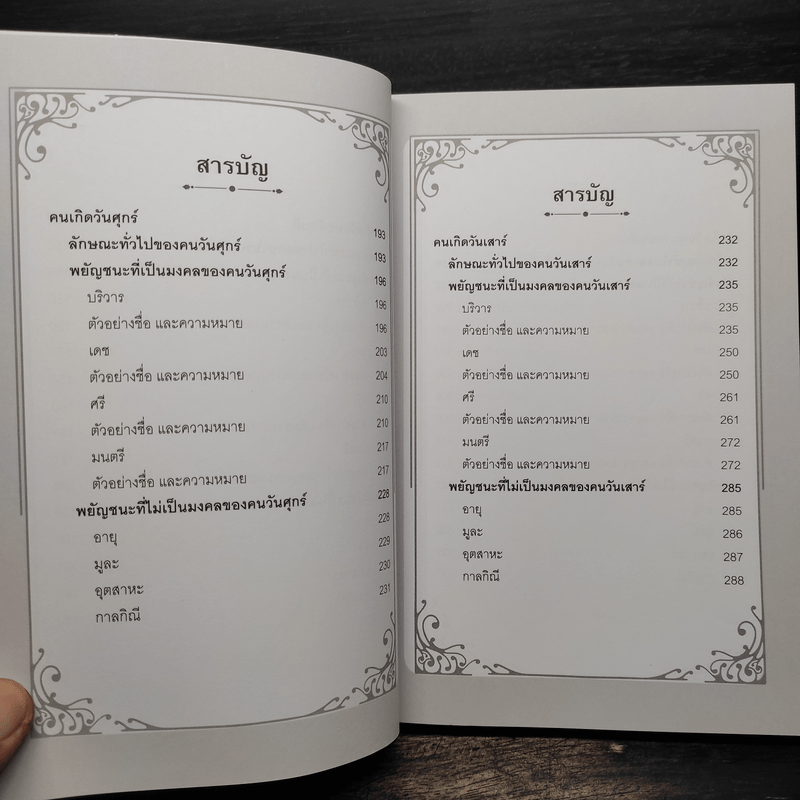 สารบัญ
คนเกิดวันศุกร์ 193
ลักษณะทั่วไปของคนวันศุกร์ 193
พยัญชนะที่เป็นมงคลของคนวันศุกร์ 196
บริวาร 196
ตัวอย่างชื่อ และความหมาย 196
เดช 203
ตัวอย่างชื่อ และความหมาย 204
ศรี 210
ตัวอย่างชื่อ และความหมาย 210
มนตรี 217
ตัวอย่างชื่อ และความหมาย 217
พยัญชนะที่ไม่เป็นมงคลของคนวันศุกร์ 228
อายุ 228
มูละ 229
อุตสาหะ 230
กาลกิณี 231
สารบัญ
คนเกิดวันเสาร์ 232
ลักษณะทั่วไปของคนวันเสาร์ 232
พยัญชนะที่เป็นมงคลของคนวันเสาร์ 235
บริวาร 235
ตัวอย่างชื่อ และความหมาย 235
เดช 250
ตัวอย่างชื่อ และความหมาย 250
ศรี 261
ตัวอย่างชื่อ และความหมาย 261
มนตรี 272
ตัวอย่างชื่อ และความหมาย 272
พยัญชนะที่ไม่เป็นมงคลของคนวันเสาร์ 285
อายุ 285
มูละ 286
อุตสาหะ 287
กาลกิณี 288